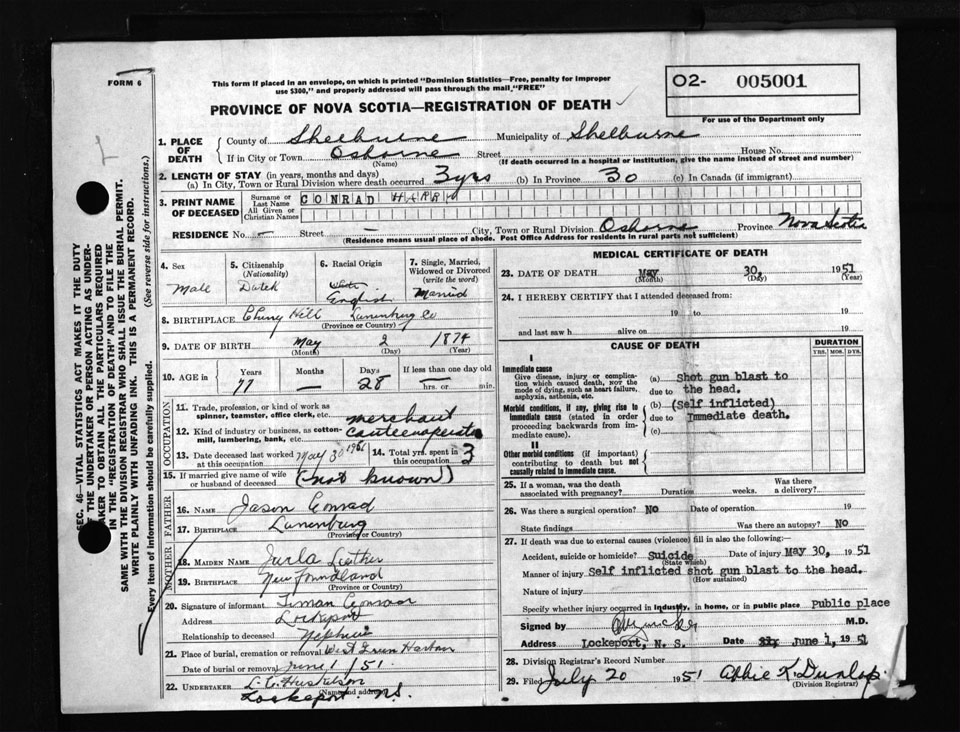 FORM 6
This form if placed in an envelope, on which is printed "Dominion Statistics—Free, penalty for improper
use $300," and properly addressed will pass through the mail "FREE"
PROVINCE OF NOVA SCOTIA—REGISTRATION OF DEATH
O2- 005001
For use of the Department only
SEC. 46—VITAL STATISTICS ACT MAKES IT THE DUTY
OF THE UNDERTAKER OR PERSON ACTING AS UNDER-
TAKER TO OBTAIN ALL THE PARTICULARS REQUIRED
IN THE "REGISTRATION OF DEATH" AND TO FILE THE
SAME WITH THE DIVISION REGISTRAR WHO SHALL ISSUE THE BURIAL PERMIT.
WRITE PLAINLY WITH UNFADING INK. THIS IS A PERMANENT RECORD.
Every item of information should be carefully supplied. (See reverse side for instructions.)
1. PLACE OF DEATH
County of Shelburne Municipality of Shelburne
If in City or Town Osborne Street House No.
(Name) (If death occurred in a hospital or institution, give the name instead of street and number)
2. LENGTH OF STAY (in years, months and days)
(a) In City, Town or Rural Division where death occurred 3 yrs (b) In Province 30 (c) In Canada (if immigrant)
3. PRINT NAME OF DECEASED
Surname or Last Name CONRAD HARRY
All Given or Christian Names
RESIDENCE No. — Street — City, Town or Rural Division Osborne Province Nova Scotia
(Residence means usual place of abode. Post Office Address for residents in rural parts not sufficient)
4. Sex
Male
5. Citizenship
(Nationality)
Dutch
6. Racial Origin
White
English
7. Single, Married,
Widowed or Divorced
(write the word)
Married
8. BIRTHPLACE Cherry Hill Lunenburg Co
(Province or Country)
9. DATE OF BIRTH May 2 1874
(Month) (Day) (Year)
10. AGE in Years Months Days If less than one day old
77 — 28 — hrs. or min.
OCCUPATION
11. Trade, profession, or kind of work as
spinner, teamster, office clerk, etc. merchant
12. Kind of industry or business, as cotton-
mill, lumbering, bank, etc. canteen operator
13. Date deceased last worked
at this occupation May 30 1951
14. Total yrs. spent in
this occupation 3
15. If married give name of wife
or husband of deceased (not known)
FATHER
16. NAME Jason Conrad
17. BIRTHPLACE Lunenburg
(Province or Country)
MOTHER
18. MAIDEN NAME
19. BIRTHPLACE Newfoundland
(Province or Country)
20. Signature of informant Conrad
Address Lockeport
Relationship to deceased Nephew
21. Place of burial, cremation or removal West Green Harbor
Date of burial or removal June 1/51
22. UNDERTAKER
(Name and address)
Lockeport N.S.
MEDICAL CERTIFICATE OF DEATH
23. DATE OF DEATH May 30, 1951
(Month) (Day) (Year)
24. I HEREBY CERTIFY that I attended deceased from:
19 to 19
and last saw h alive on 19
CAUSE OF DEATH
DURATION
YRS. MOS. DYS.
I
Immediate cause
Give disease, injury or complica-
tion which caused death, NOT the
mode of dying, such as heart failure,
asphyxia, asthenia, etc.
(a) Shot gun blast to
due to the head.
Morbid conditions, if any, giving rise to
immediate cause (stated in order
proceeding backwards from im-
mediate cause).
(b) (Self inflicted)
due to Immediate death.
(c)
II
Other morbid conditions (if important)
contributing to death but not
causally related to immediate cause.
25. If a woman, was the death
associated with pregnancy? Duration weeks. Was there
a delivery?
26. Was there a surgical operation? No Date of operation 19
State findings Was there an autopsy? No
27. If death was due to external causes (violence) fill in also the following:—
Accident, suicide or homicide? Suicide Date of injury May 30, 1951
(State which)
Manner of injury Self inflicted shot gun blast to the head.
(How sustained)
Nature of injury
Specify whether injury occurred in industry, in home, or in public place Public place
Signed by M.D.
Address Lockeport, N. S. Date June 1, 1951
28. Division Registrar's Record Number
29. Filed July 20 1951 Abbie K. Dunlop
(Division Registrar)